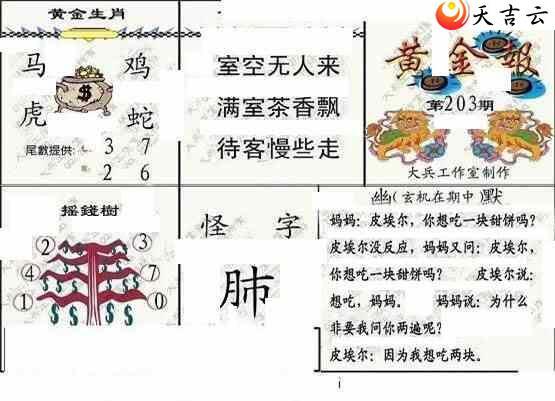 黄金生肖
马 鸡
虎 蛇
尾數提供: 3 7
2 6
室空无人来
满室茶香飘
待客慢些走
天吉云
黄金報
第203期
大兵工作室制作
摇錢樹
② ③
④ ⑦
① ⓪
怪 字
肺
幽(玄机在期中)默
妈妈：皮埃尔，你想吃一块甜饼吗？
皮埃尔没反应，妈妈又问：皮埃尔，
你想吃一块甜饼吗？ 皮埃尔说：
想吃，妈妈。 妈妈说：为什么
非要我问你两遍呢？
皮埃尔：因为我想吃两块。